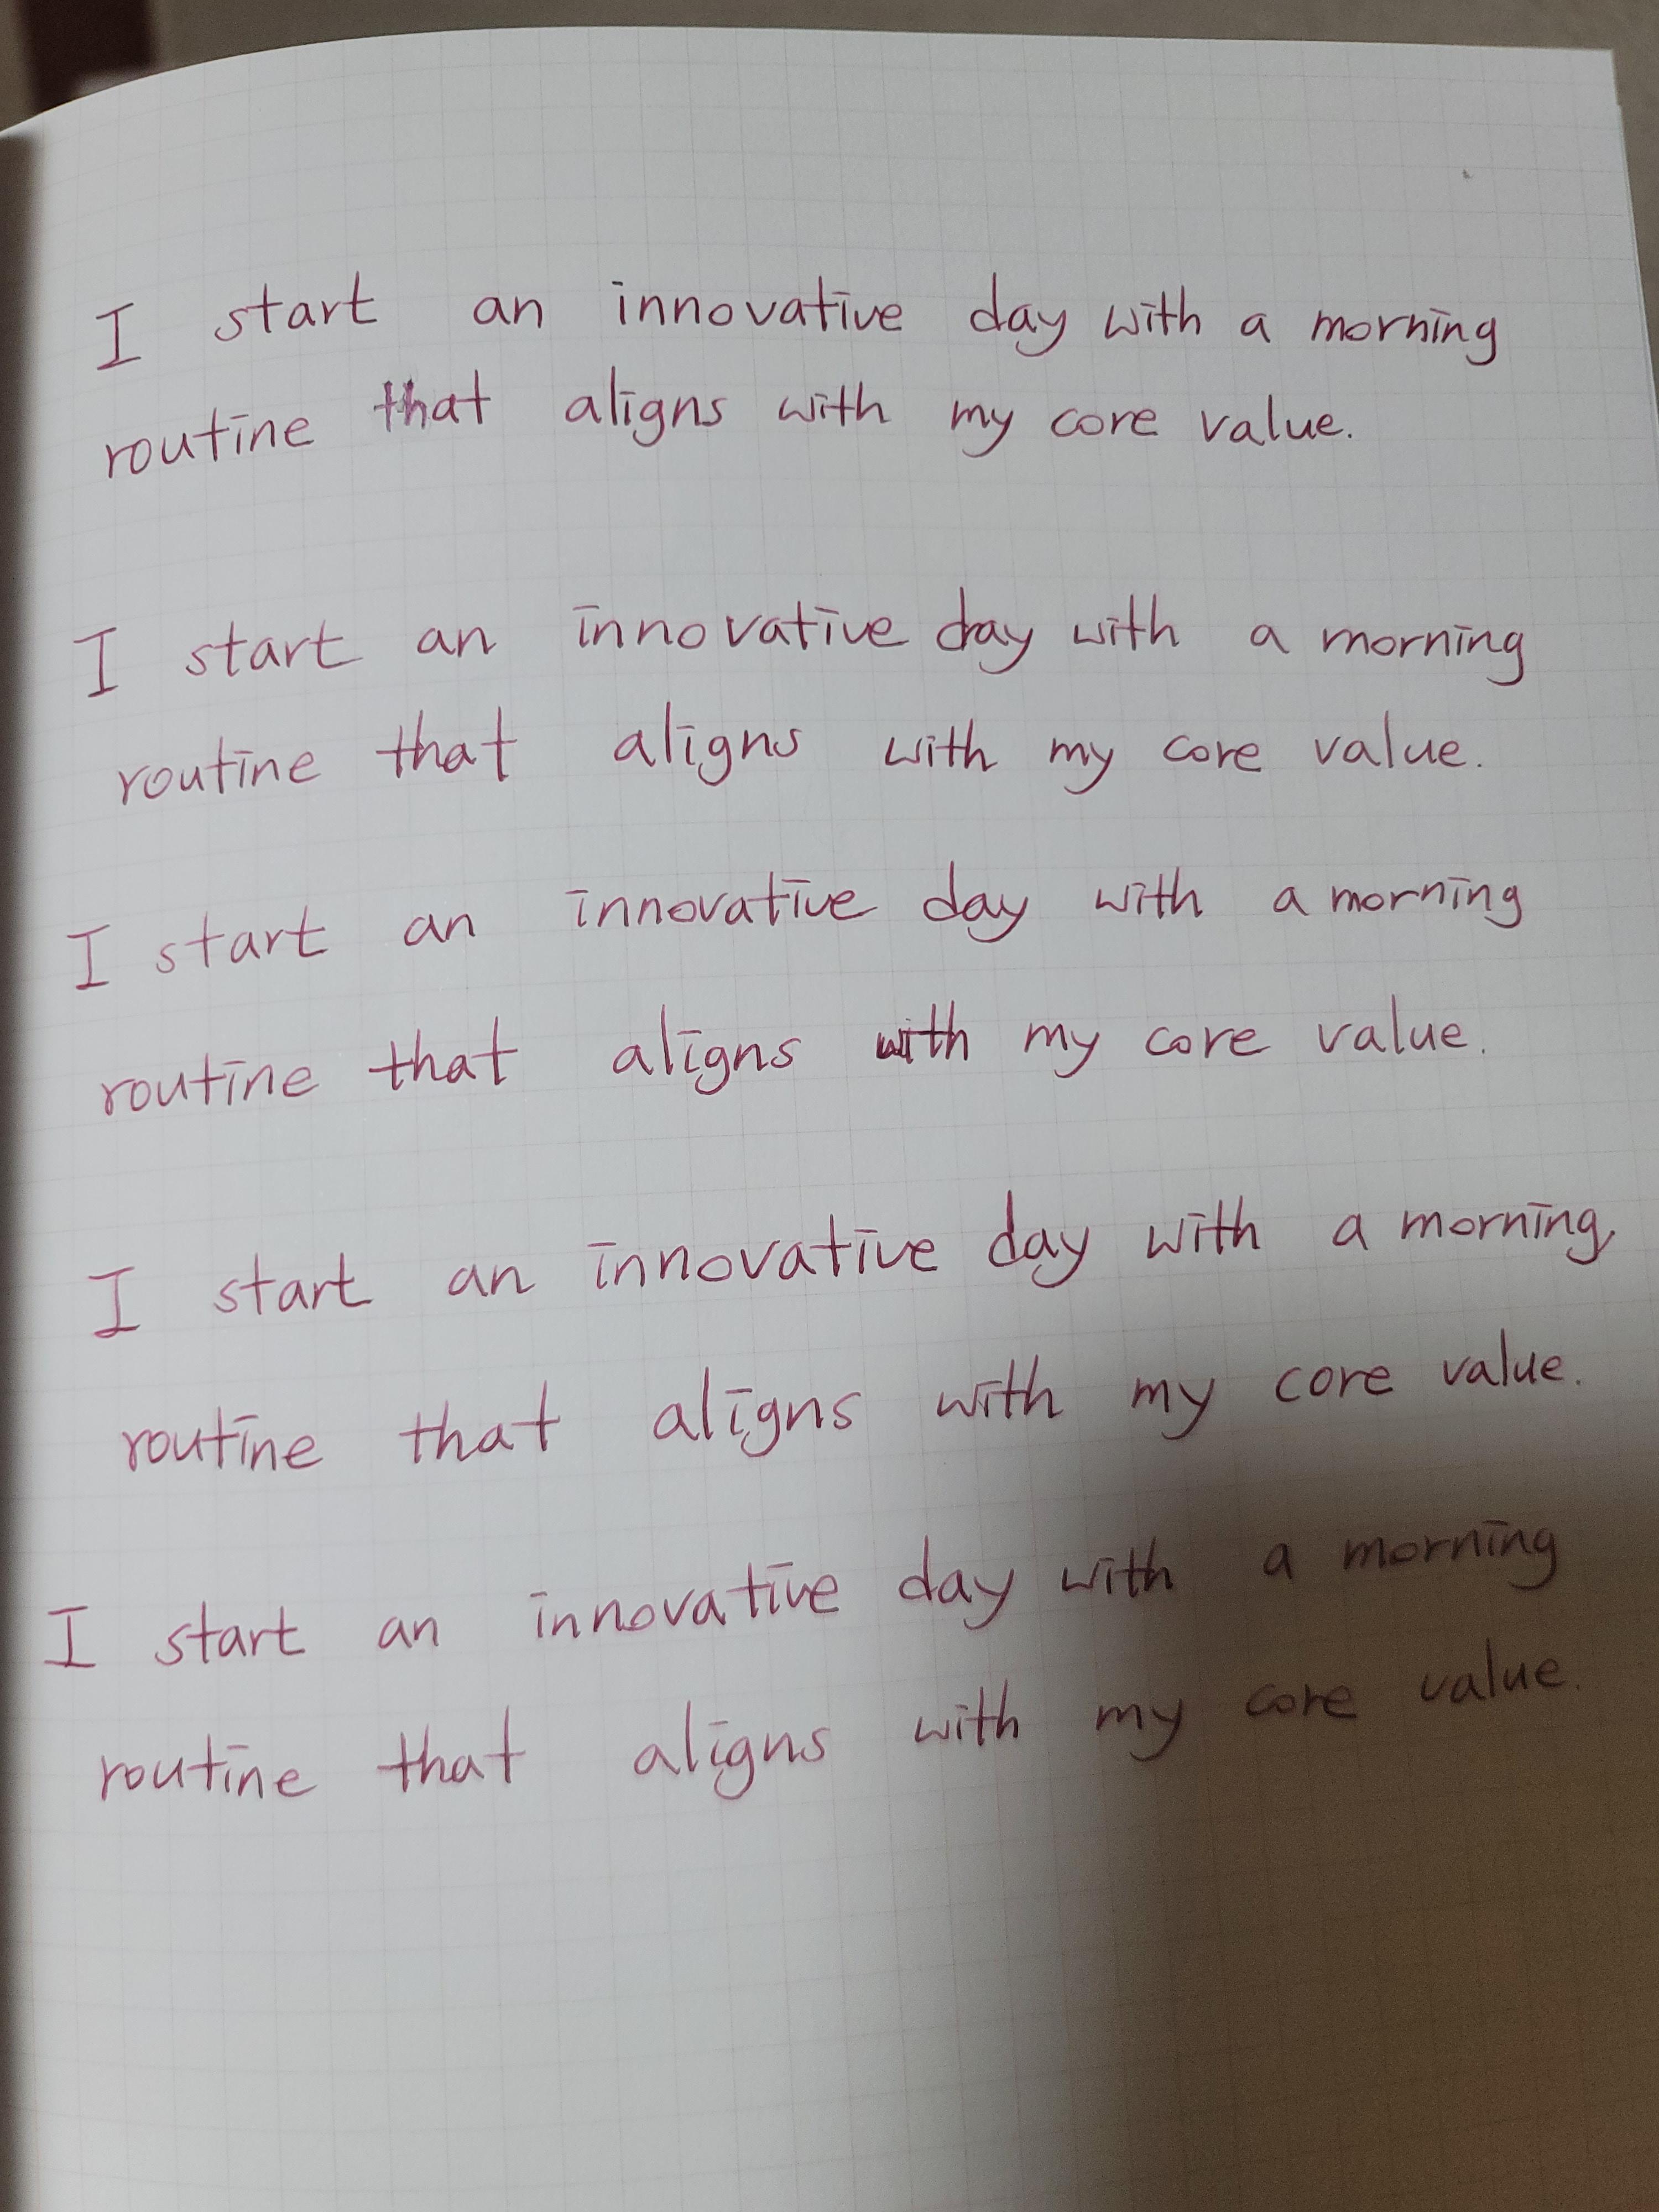 I start an innovative day with a morning
routine that aligns with my core value.
I start an innovative day with a morning
routine that aligns with my core value.
I start an innovative day with a morning
routine that aligns with my core value.
I start an innovative day with a morning
routine that aligns with my core value.
I start an innovative day with a morning
routine that aligns with my core value.